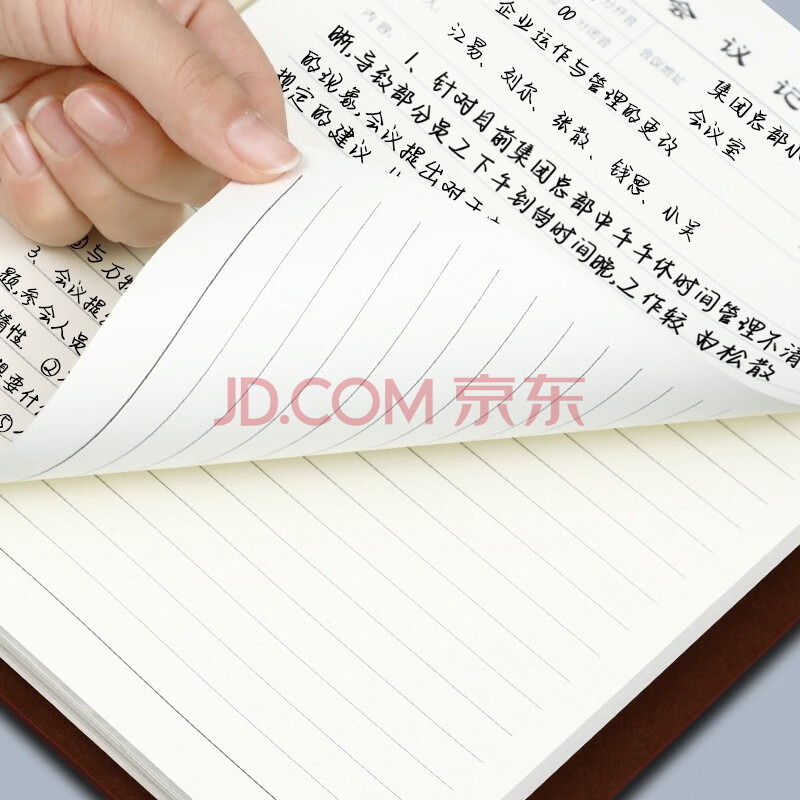 会议记
集团总部小
会议室
00分开会
分闭会
会议地址
企业运作与管理的更改
江易、刘尔、张散、钱思、小吴
内容:
1、针对目前集团总部中午午休时间管理不清
晰,导致部分员工下午到岗时间晚,工作较为松散
的现象,会议提出对于
规定的建议
与万
3、会议提
题,参会人员
情性 ②
想要什
⑤
JD.COM 京东